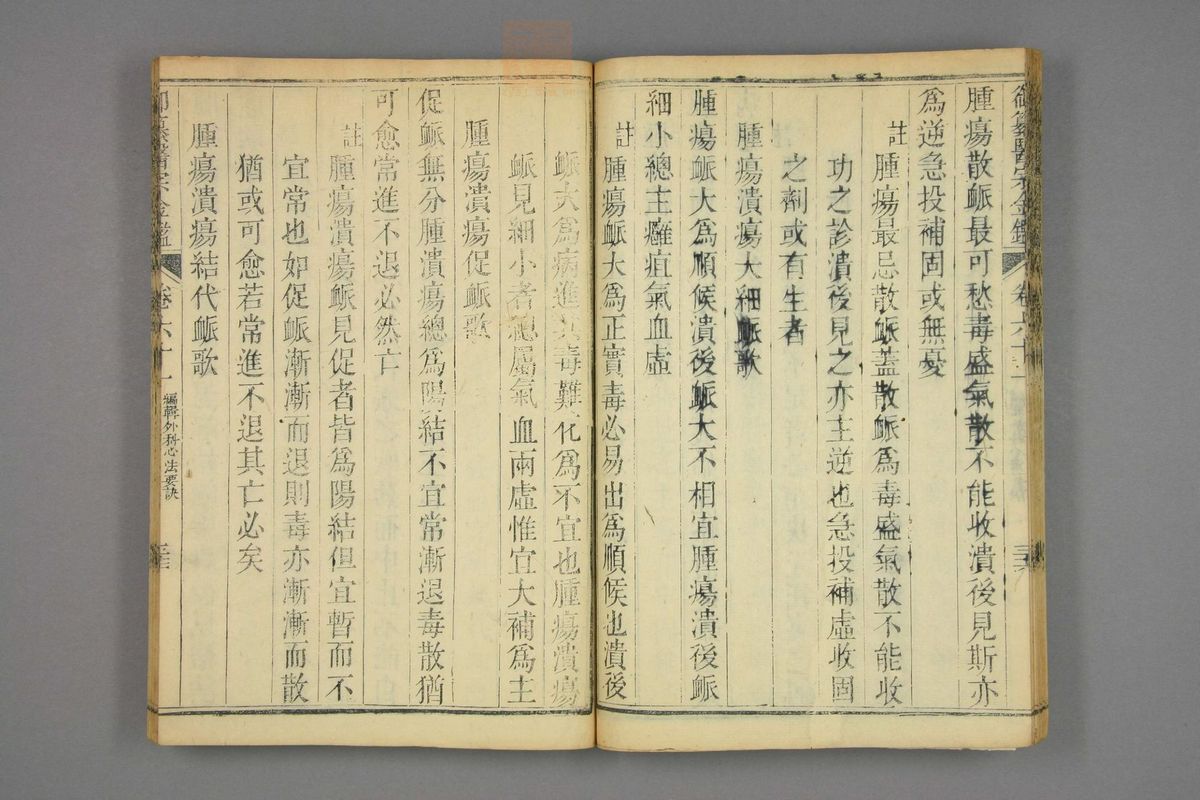 御纂醫宗金鑑 卷六十一 三十
腫瘍散脈最可愁毒盛氣散不能收潰後見斯亦
為逆急投補固或無憂
註腫瘍最忌散脈蓋散脈為毒盛氣散不能收
功之診潰後見之亦主逆也急投補虛收固
之劑或有生者
腫瘍潰瘍大細脈歌
腫瘍脈大為順候潰後脈大不相宜腫瘍潰後脈
細小總主癰疽氣血虛
註腫瘍脈大為正實毒必易出為順候也潰後
脈大為病進毒難化為不宜也腫瘍潰瘍
脈見細小者總屬氣血兩虛惟宜大補為主
腫瘍潰瘍促脈歌
促脈無分腫潰瘍總為陽結不宜常漸退毒散猶
可愈常進不退必然亡
註腫瘍潰瘍脈見促者皆為陽結但宜暫而不
宜常也如促脈漸漸而退則毒亦漸漸而散
猶或可愈若常進不退其亡必矣
腫瘍潰瘍結代脈歌
御纂醫宗金鑑 卷六十一 編輯外科心法要訣